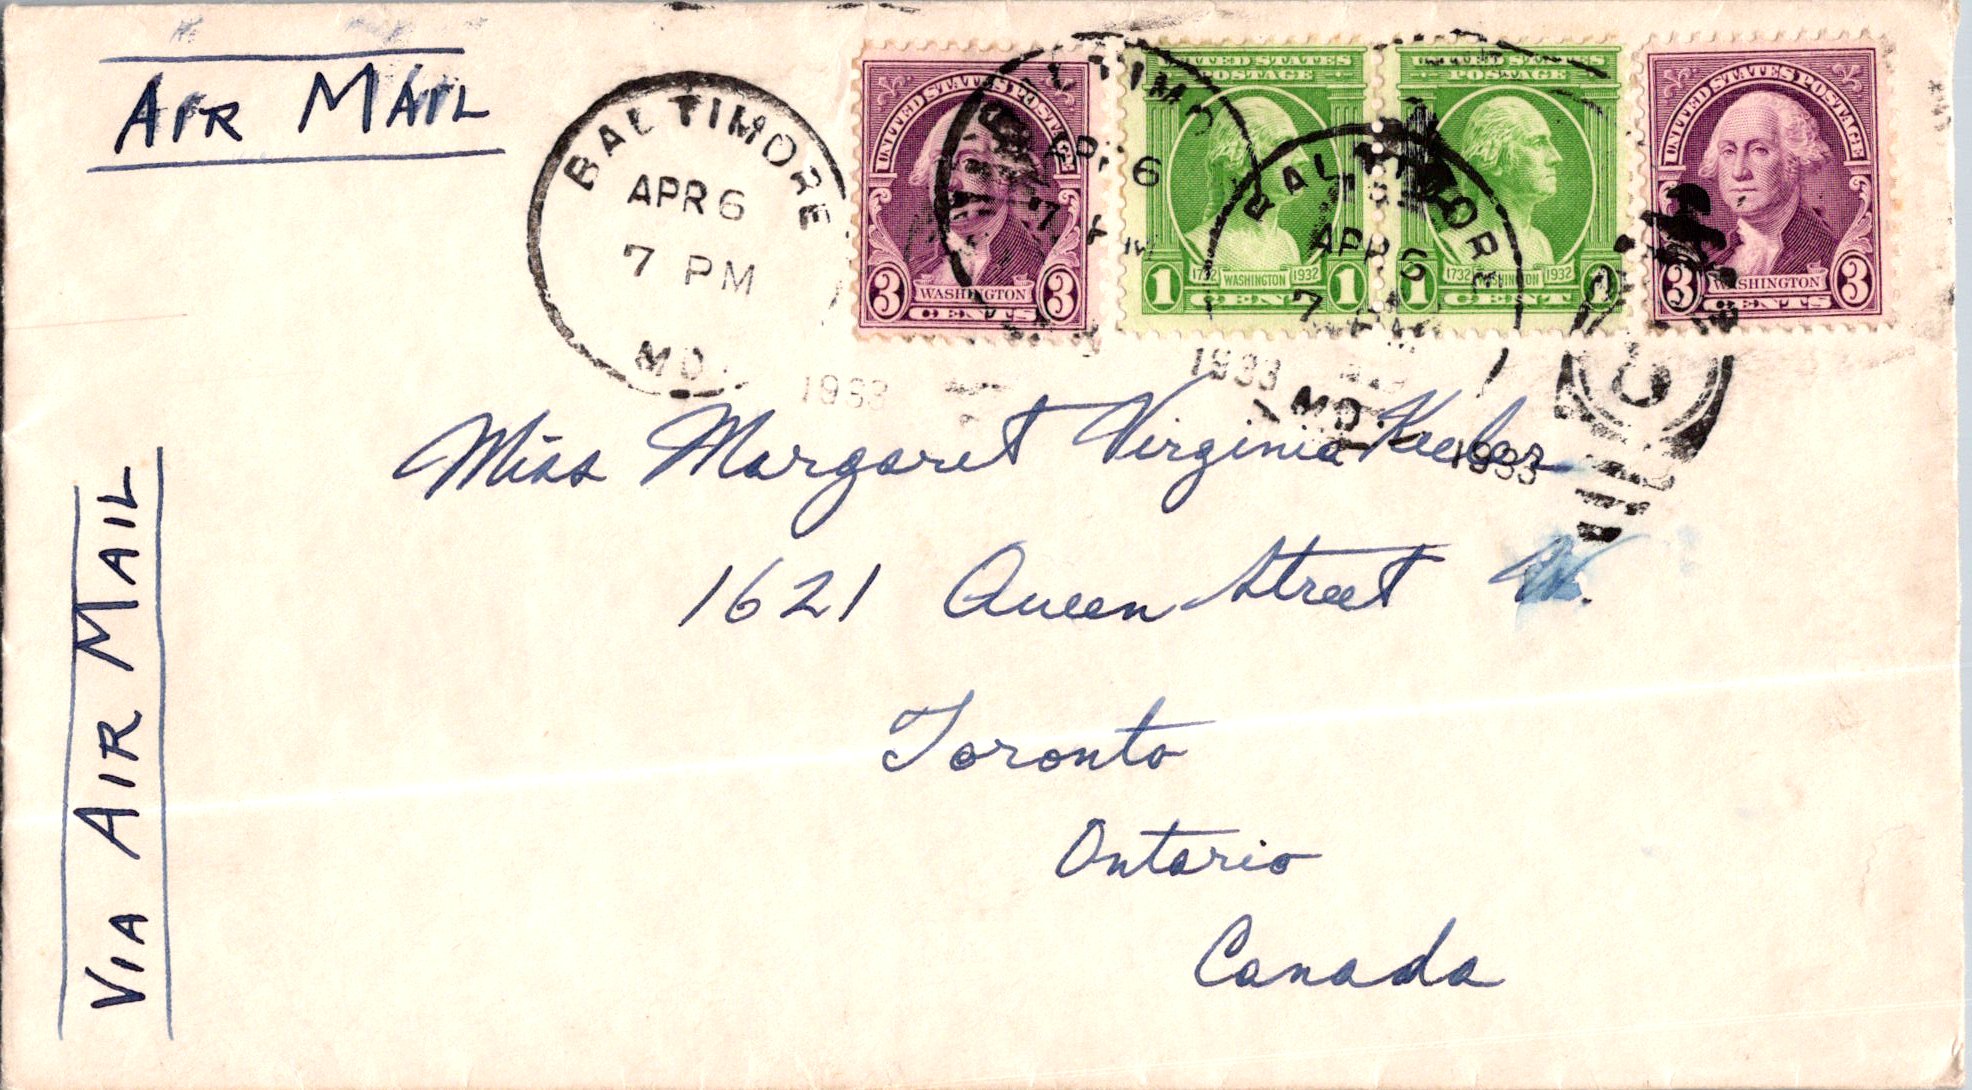 AIR MAIL
VIA AIR MAIL
BALTIMORE
APR 6
7 PM
MD.
1933
UNITED STATES POSTAGE
3 WASHINGTON 3
CENTS
BALTIMO
APR 6
7 PM
1933
UNITED STATES
POSTAGE
1732 WASHINGTON 1932
1 CENT 1
BALTIMORE
APR 6
7 PM
MD.
1933
UNITED STATES
POSTAGE
1732 WASHINGTON 1932
1 CENT
UNITED STATES POSTAGE
3 WASHINGTON 3
CENTS
Miss Margaret Virginia Keeler
1621 Queen Street W.
Toronto
Ontario
Canada